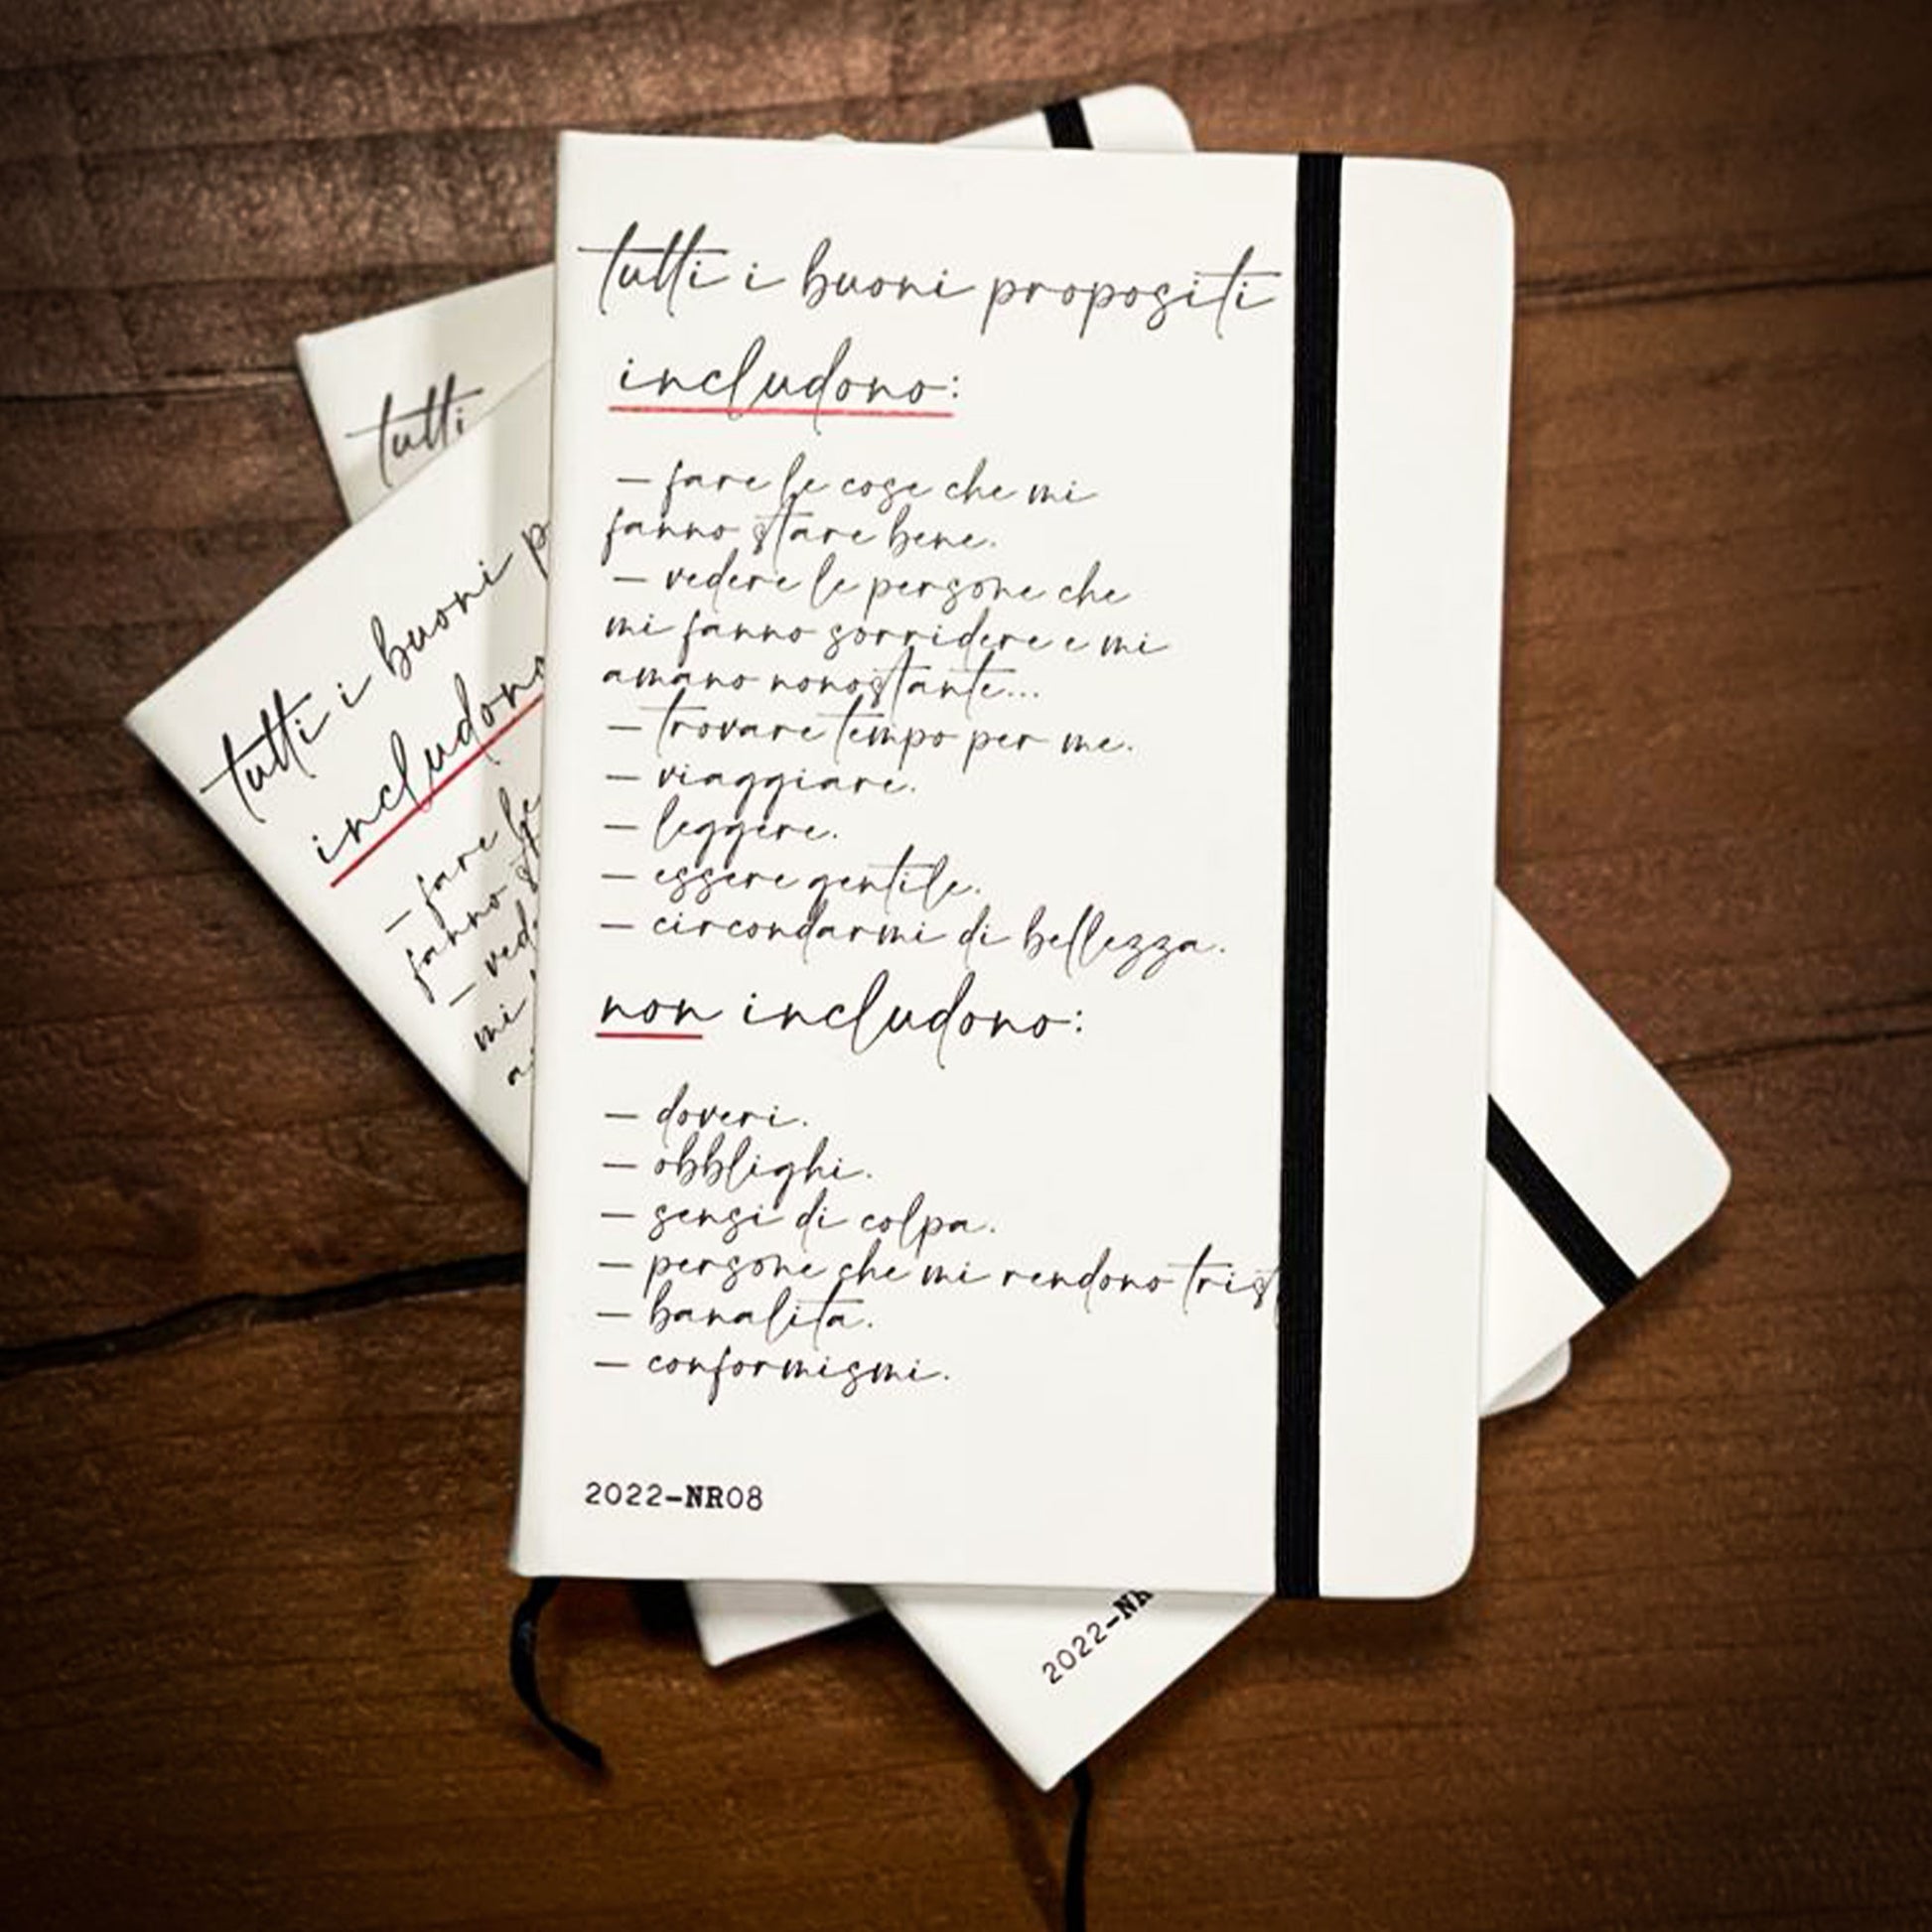 tutti i buoni propositi
includono:
– fare le cose che mi
fanno stare bene.
– vedere le persone che
mi fanno sorridere e mi
amano nonostante...
– trovare tempo per me.
– viaggiare.
– leggere.
– essere gentile.
– circondarmi di bellezza.
non includono:
– doveri.
– obblighi.
– sensi di colpa.
– persone che mi rendono trist
– banalita.
– conformismi.
2022-NR08
tutti
tutti i buoni p
includono
– fare le
fanno st
– ved
mi
a
2022-NR